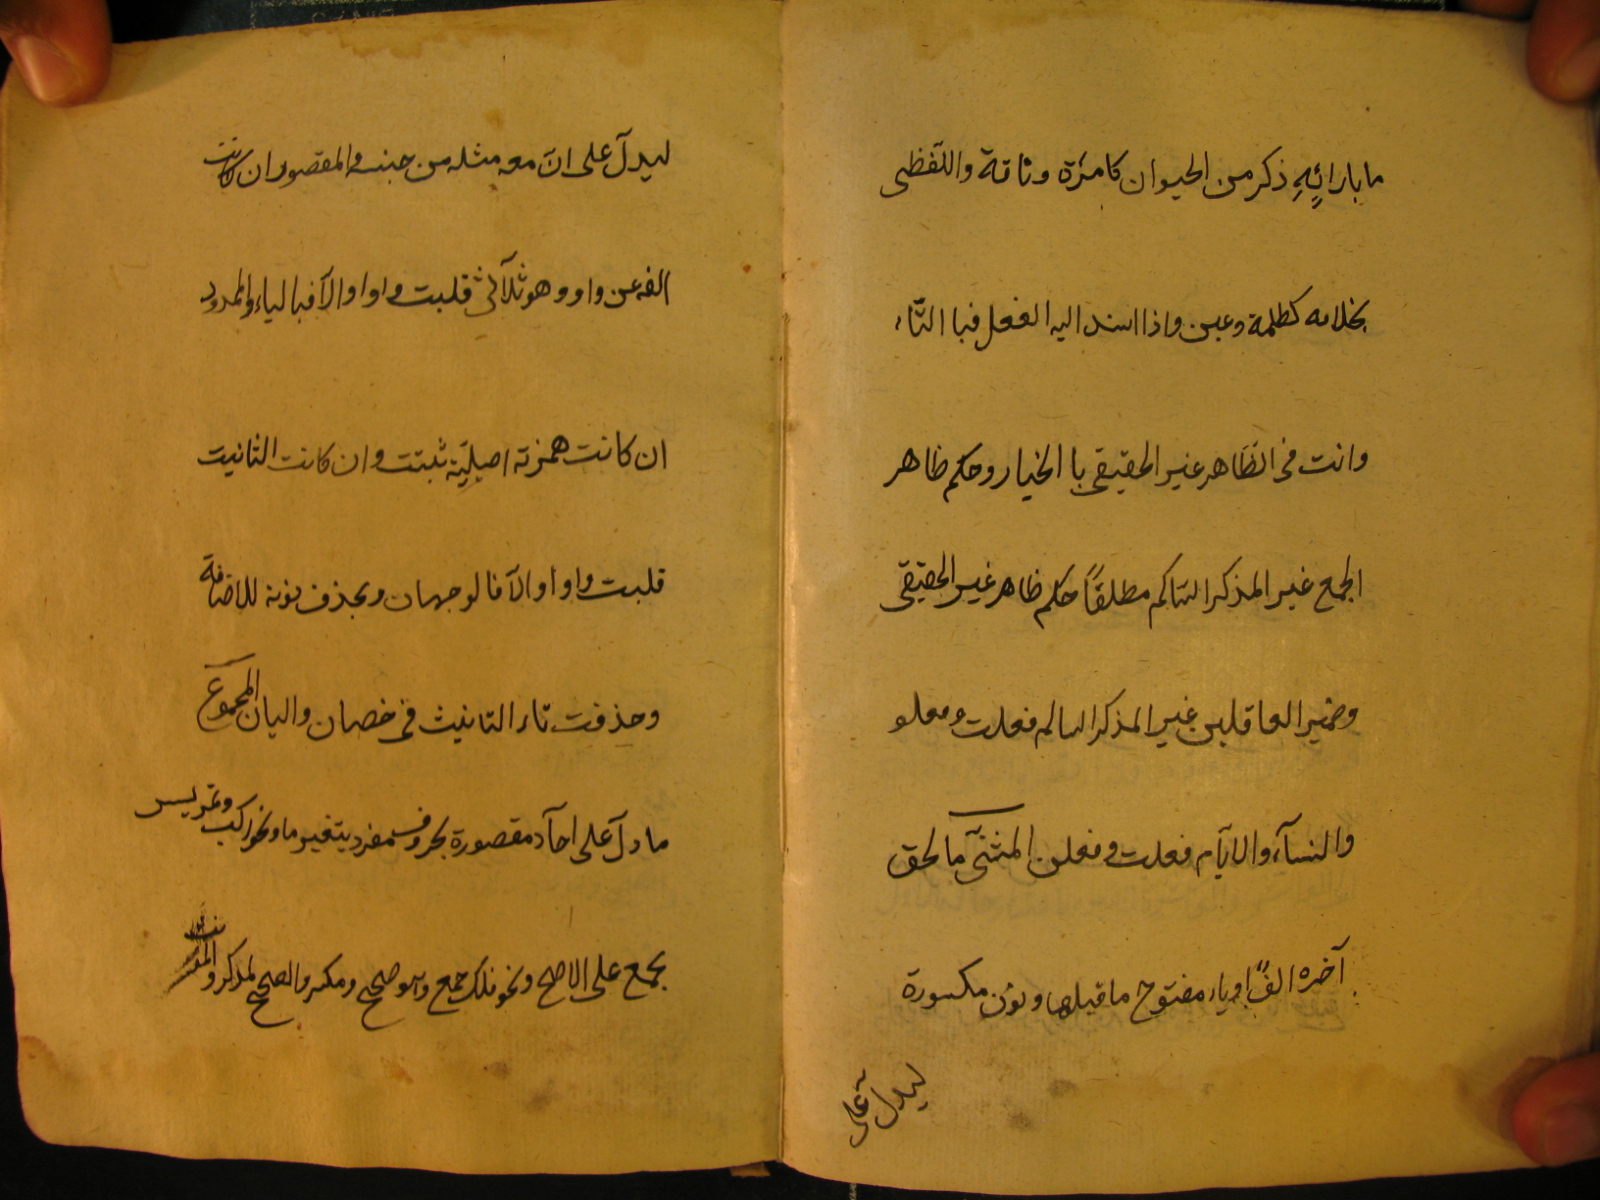 ما بارائهِ ذكر من الحيوان كامرَة وناقة واللّفظى
بخلافه كظلمة وعين واذا اسند اليه الفعل فبا التّاء
وانت فى الظّاهر غير الحقيقى با الخيار وحكم ظاهر
الجمع غير المذكر السّالم مطلقاً حكم ظاهر غير الحقيقى
وضمير العاقلين غير المذكر السالم فعلت وفعلو
والنسآء والايآم فعلت وفعلن المثنّى ما لحق
آخره الفٌ او ياء مفتوح ما قبلها ونون مكسورة
ليدلّ على
ليدلّ على انّ معه مثله من جنسه فالمقصور ان كانت
الفه عن واو وهو ثلآثى قلبت واوا والآ فبا الياء والممدود
ان كانت همزته اصليّة ثبتت وان كانت التانيث
قلبت واوا والآ فالوجهان ويحذف نونه للاضافة
وحذفت تاء التانيث فى خصيان واليان المجموع
ما دلّ على احآد مقصورة بحروف مفرد بتغير ما ونحو ركب وتمر ليس
بجمع على الاصح ونحو فلك جمع وهو صحيح ومكسر والصحيح لمذكر والمؤنث